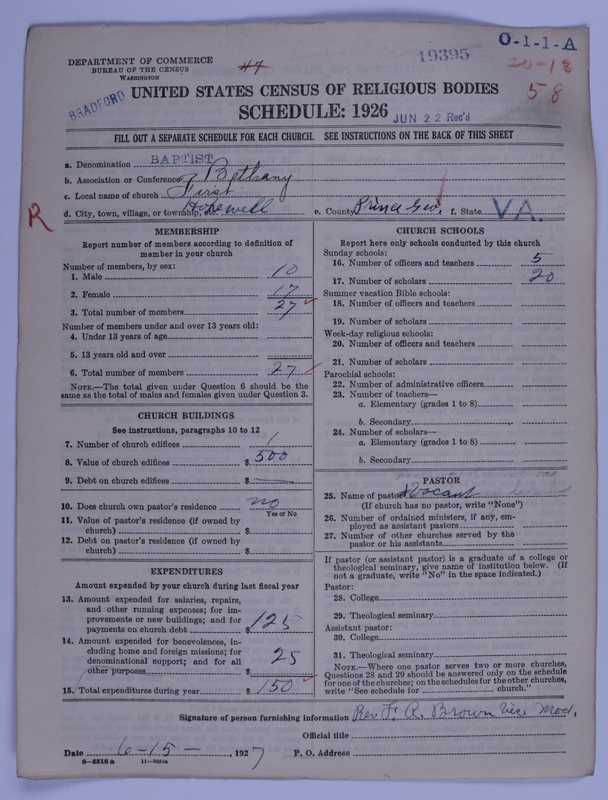 DEPARTMENT OF COMMERCE
BUREAU OF THE CENSUS
WASHINGTON
44
19395
O-1-1-A
20-18
58
BRADFORD
UNITED STATES CENSUS OF RELIGIOUS BODIES
SCHEDULE: 1926
JUN 22 Rec'd
FILL OUT A SEPARATE SCHEDULE FOR EACH CHURCH. SEE INSTRUCTIONS ON THE BACK OF THIS SHEET
a. Denomination BAPTIST
b. Association or Conference Bethany
c. Local name of church First
d. City, town, village, or township Hopewell e. County Prince Geo. f. State VA.
R
MEMBERSHIP
Report number of members according to definition of
member in your church
Number of members, by sex:
1. Male 10
2. Female 17
3. Total number of members 27
Number of members under and over 13 years old:
4. Under 13 years of age
5. 13 years old and over
6. Total number of members 27
NOTE.—The total given under Question 6 should be the
same as the total of males and females given under Question 3.
CHURCH BUILDINGS
See instructions, paragraphs 10 to 12
7. Number of church edifices 1
8. Value of church edifices $ 500
9. Debt on church edifices $
10. Does church own pastor's residence no
Yes or No
11. Value of pastor's residence (if owned by
church) $
12. Debt on pastor's residence (if owned by
church) $
EXPENDITURES
Amount expended by your church during last fiscal year
13. Amount expended for salaries, repairs,
and other running expenses; for im-
provements or new buildings; and for
payments on church debt $ 125
14. Amount expended for benevolences, in-
cluding home and foreign missions; for
denominational support; and for all
other purposes $ 25
15. Total expenditures during year $ 150
CHURCH SCHOOLS
Report here only schools conducted by this church
Sunday schools:
16. Number of officers and teachers 5
17. Number of scholars 20
Summer vacation Bible schools:
18. Number of officers and teachers
19. Number of scholars
Week-day religious schools:
20. Number of officers and teachers
21. Number of scholars
Parochial schools:
22. Number of administrative officers
23. Number of teachers—
a. Elementary (grades 1 to 8)
b. Secondary
24. Number of scholars—
a. Elementary (grades 1 to 8)
b. Secondary
PASTOR
25. Name of pastor Vacant
(If church has no pastor, write "None")
26. Number of ordained ministers, if any, em-
ployed as assistant pastors
27. Number of other churches served by the
pastor or his assistants
If pastor (or assistant pastor) is a graduate of a college or
theological seminary, give name of institution below. (If
not a graduate, write "No" in the space indicated.)
Pastor:
28. College
29. Theological seminary
Assistant pastor:
30. College
31. Theological seminary
NOTE.—Where one pastor serves two or more churches,
Questions 28 and 29 should be answered only on the schedule
for one of the churches; on the schedules for the other churches,
write "See schedule for church."
Signature of person furnishing information Rev. F. R. Brown Vice Mod.
Official title
Date 6-15-, 1927 P. O. Address
8-5518a